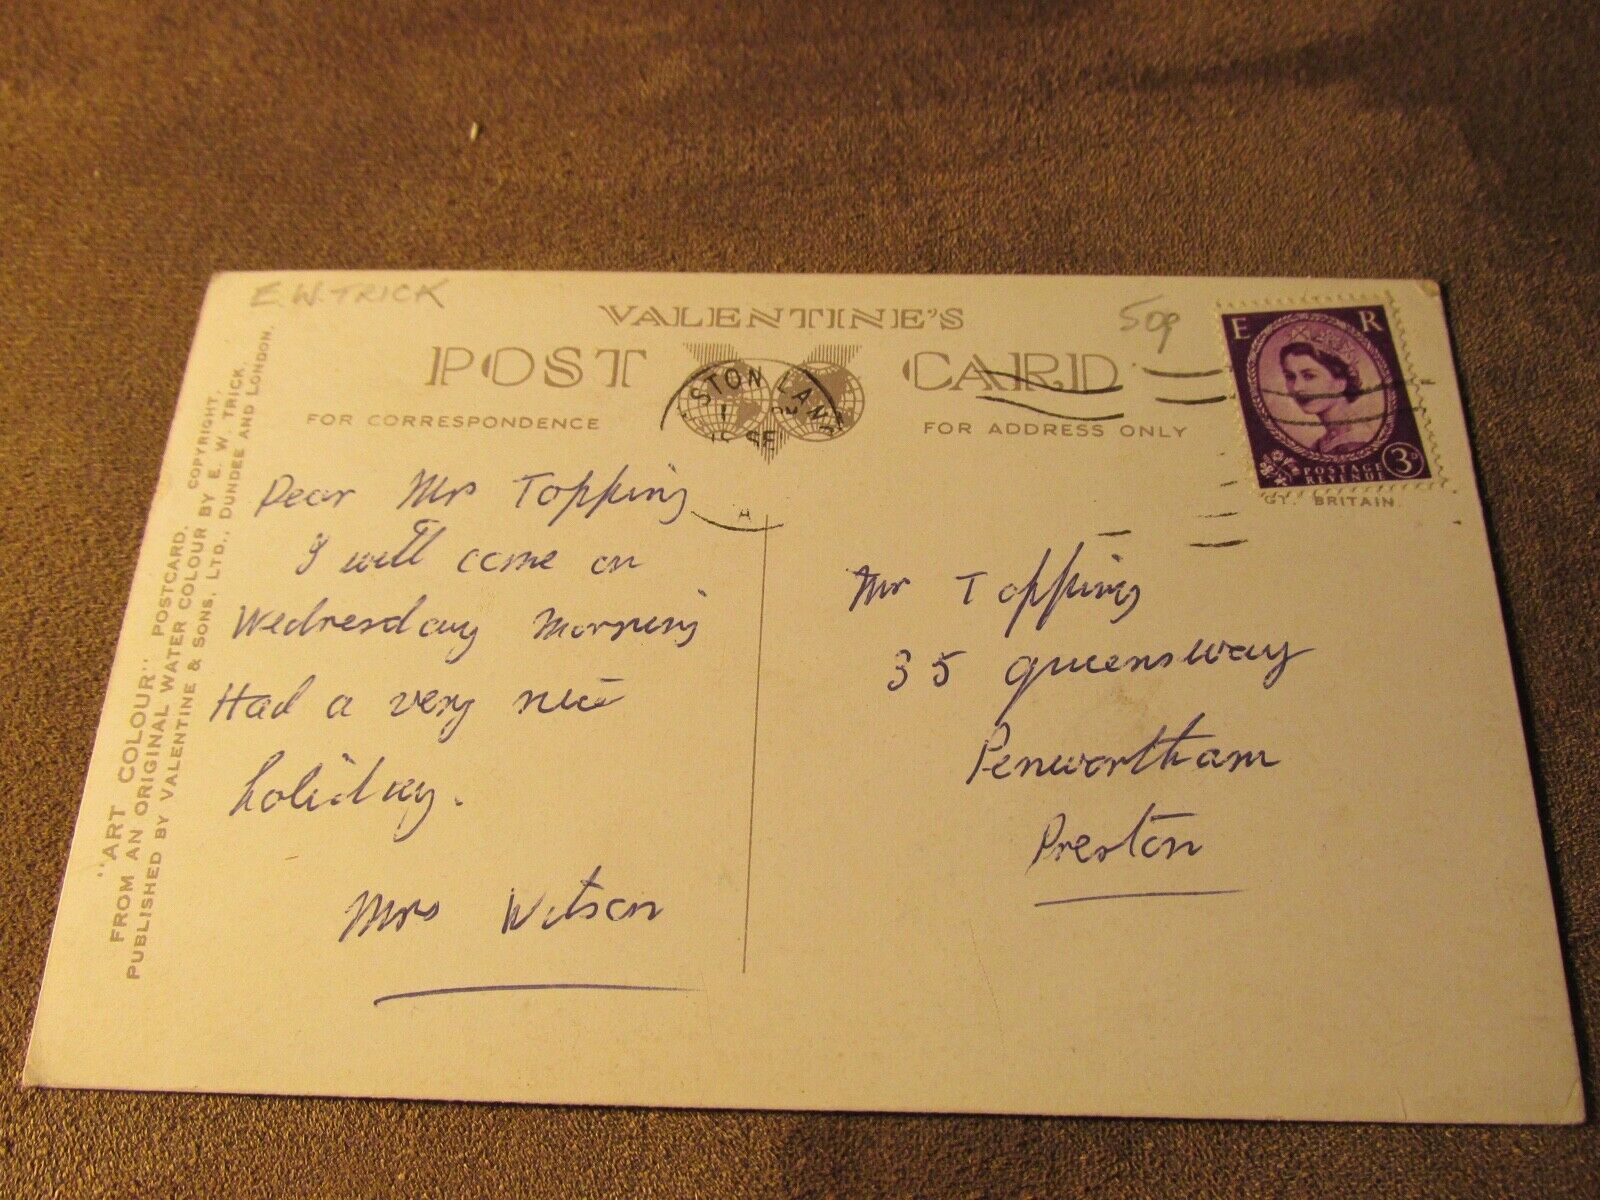 E.W. TRICK
VALENTINE'S
50p
POST CARD
FOR CORRESPONDENCE
FOR ADDRESS ONLY
STON LAN
SE
A
E R
POSTAGE
REVENUE
3D
GT. BRITAIN.
Dear Mr Topping
I will come on
Wednesday Morning
Had a very nice
holiday.
Mrs Wilson
Mr Topping
35 queensway
Penwortham
Preston
"ART COLOUR" POSTCARD.
FROM AN ORIGINAL WATER COLOUR BY E. W. TRICK.
COPYRIGHT.
PUBLISHED BY VALENTINE & SONS, LTD., DUNDEE AND LONDON.